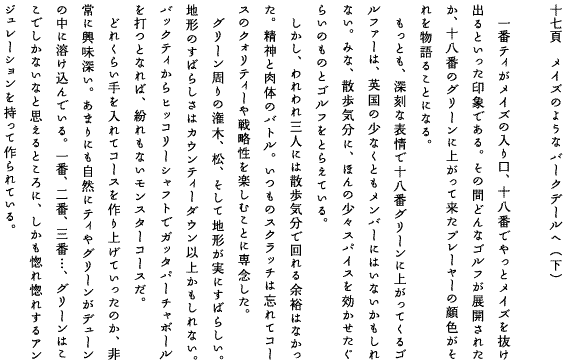 十七頁　メイズのようなバークデールへ（下）
　一番ティがメイズの入り口、十八番でやっとメイズを抜け
出るといった印象である。その間どんなゴルフが展開された
か、十八番のグリーンに上がって来たプレーヤーの顔色がそ
れを物語ることになる。
　もっとも、深刻な表情で十八番グリーンに上がってくるゴ
ルファーは、英国の少なくともメンバーにはいないかもしれ
ない。みな、散歩気分に、ほんの少々スパイスを効かせたぐ
らいのものとゴルフをとらえている。
　しかし、われわれ三人には散歩気分で回れる余裕はなかっ
た。精神と肉体のバトル。いつものスクラッチは忘れてコー
スのクォリティーや戦略性を楽しむことに専念した。
　グリーン周りの潅木、松、そして地形が実にすばらしい。
地形のすばらしさはカウンティーダウン以上かもしれない。
バックティからヒッコリーシャフトでガッタパーチャボール
を打つとなれば、紛れもないモンスターコースだ。
　どれくらい手を入れてコースを作り上げていったのか、非
常に興味深い。あまりにも自然にティやグリーンがデューン
の中に溶け込んでいる。一番、二番、三番…、グリーンはこ
こでしかないなと思えるところに、しかも惚れ惚れするアン
ジュレーションを持って作られている。